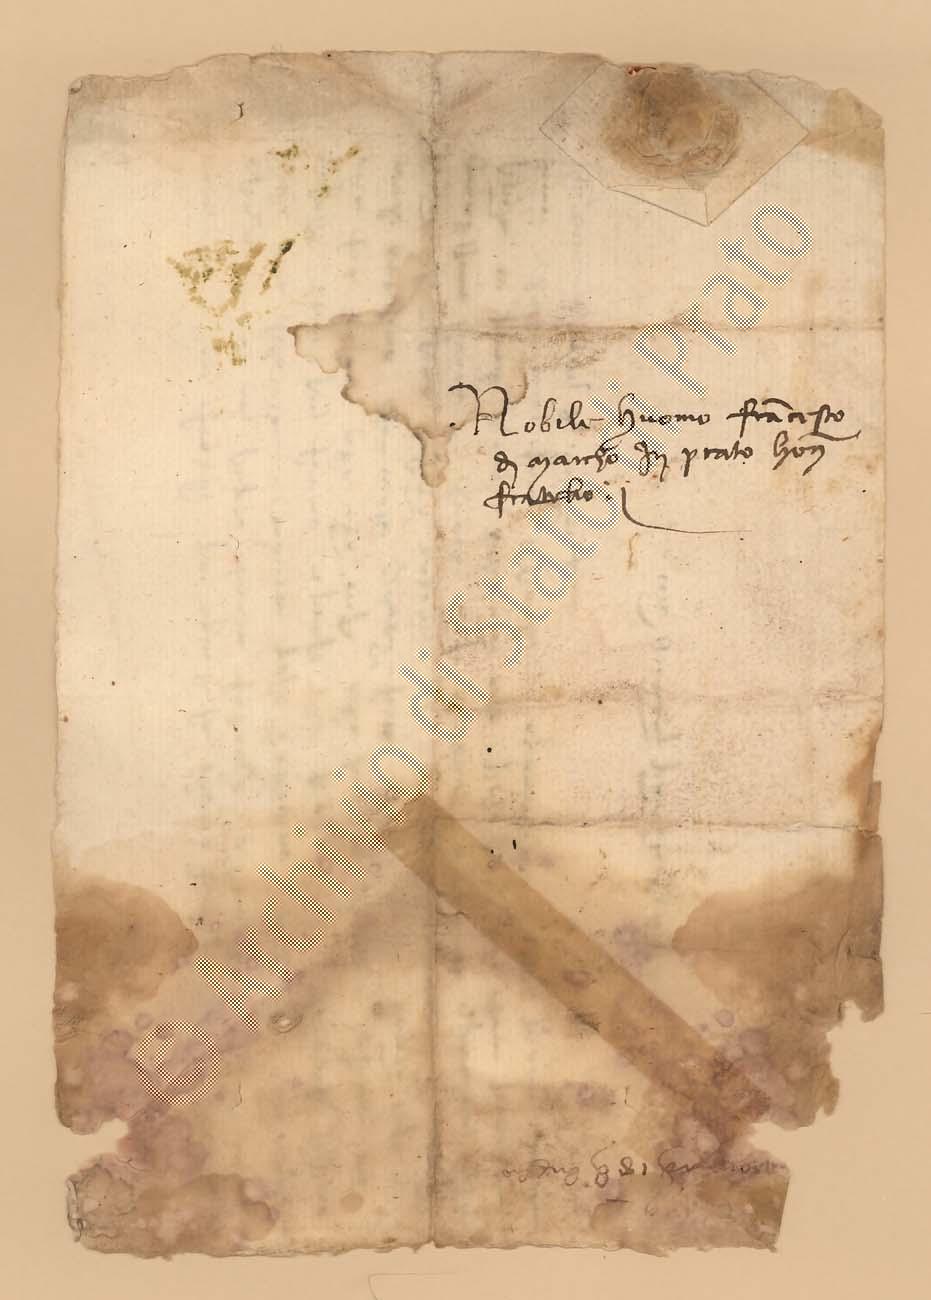 Nobile huomo franc̄escho
di marcho In prato hon̄
fratello.
© Archivio di Stato di Prato